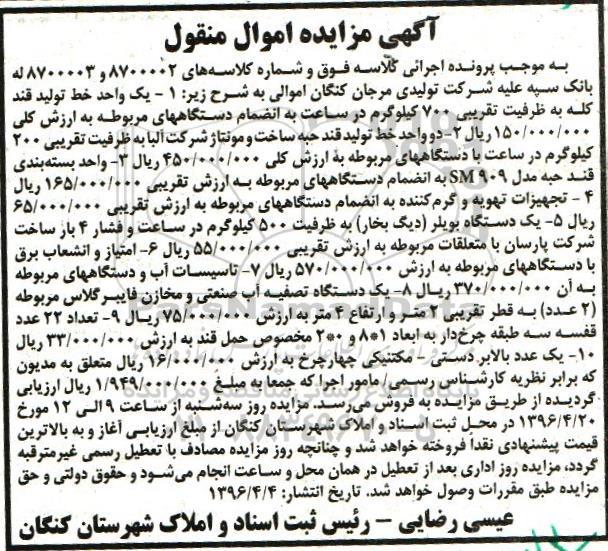 آگهی مزایده اموال منقول
به موجب پرونده اجرائی کلاسه فوق و شماره کلاسه‌های ۸۷۰۰۰۰۲ و ۸۷۰۰۰۰۳ له
بانک سپه علیه شرکت تولیدی مرجان کنگان اموالی به شرح زیر: ۱ - یک واحد خط تولید قند
کله به ظرفیت تقریبی ۷۰۰ کیلوگرم در ساعت به انضمام دستگاههای مربوطه به ارزش کلی
۱۵۰/۰۰۰/۰۰۰ ریال ۲- دو واحد خط تولید قند حبه ساخت و مونتاژ شرکت آلبا به ظرفیت تقریبی ۲۰۰
کیلوگرم در ساعت با دستگاههای مربوطه به ارزش کلی ۴۵۰/۰۰۰/۰۰۰ ریال ۳- واحد بسته‌بندی
قند حبه مدل SM ۹۰۹ به انضمام دستگاههای مربوطه به ارزش تقریبی ۱۶۵/۰۰۰/۰۰۰ ریال
۴ - تجهیزات تهویه و گرم کننده به انضمام دستگاههای مربوطه به ارزش تقریبی ۶۵/۰۰۰/۰۰۰
ریال ۵- یک دستگاه بویلر (دیگ بخار) به ظرفیت ۵۰۰ کیلوگرم در ساعت و فشار ۴ بار ساخت
شرکت پارسان با متعلقات مربوطه به ارزش تقریبی ۵۵/۰۰۰/۰۰۰ ریال ۶- امتیاز و انشعاب برق
با دستگاههای مربوطه به ارزش ۵۷۰/۰۰۰/۰۰۰ ریال ۷- تاسیسات آب و دستگاههای مربوطه
به آن ۳۷۰/۰۰۰/۰۰۰ ریال ۸- یک دستگاه تصفیه آب صنعتی و مخازن فایبرگلاس مربوطه
(۲ عدد) به قطر تقریبی ۲ متر و ارتفاع ۴ متر به ارزش ۷۵/۰۰۰/۰۰۰ ریال ۹- تعداد ۲۲ عدد
قفسه سه طبقه چرخ‌دار به ابعاد ۱*۸ و ۲*۰ مخصوص حمل قند به ارزش ۳۳/۰۰۰/۰۰۰ ریال
۱۰- یک عدد بالابر دستی - مکتنیکی چهارچرخ به ارزش ۱۶/۰۰۰/۰۰۰ ریال متعلق به مدیون
که برابر نظریه کارشناس رسمی/ مامور اجرا که جمعا به مبلغ ۱/۹۴۹/۰۰۰/۰۰۰ ریال ارزیابی
گردیده از طریق مزایده به فروش می‌رسد. مزایده روز سه‌شنبه از ساعت ۹ الی ۱۲ مورخ
۱۳۹۶/۴/۲۰ در محل ثبت اسناد و املاک شهرستان کنگان از مبلغ ارزیابی آغاز و به بالاترین
قیمت پیشنهادی نقدا فروخته خواهد شد و چنانچه روز مزایده مصادف با تعطیل رسمی غیرمترقبه
گردد، مزایده روز اداری بعد از تعطیل در همان محل و ساعت انجام می‌شود و حقوق دولتی و حق
مزایده طبق مقررات وصول خواهد شد. تاریخ انتشار: ۱۳۹۶/۴/۴
عیسی رضایی - رئیس ثبت اسناد و املاک شهرستان کنگان